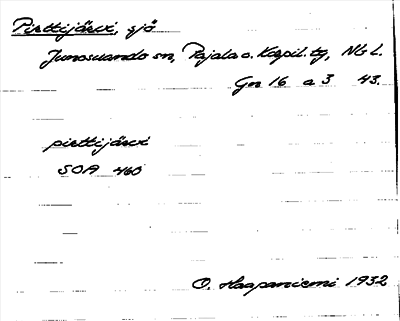 Pirttijärvi, sjö
Junosuando sn, Pajala o. Korpil. tg, Nb L.
Gn 16 a 3 43.
pirttijärvi
SOA 460
O. Haapaniemi 1932